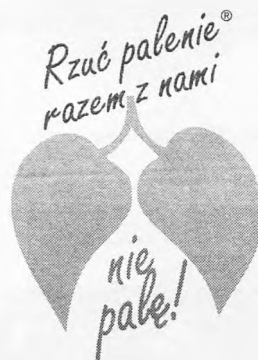 Rzuć palenie®
razem z nami
nie
palę!